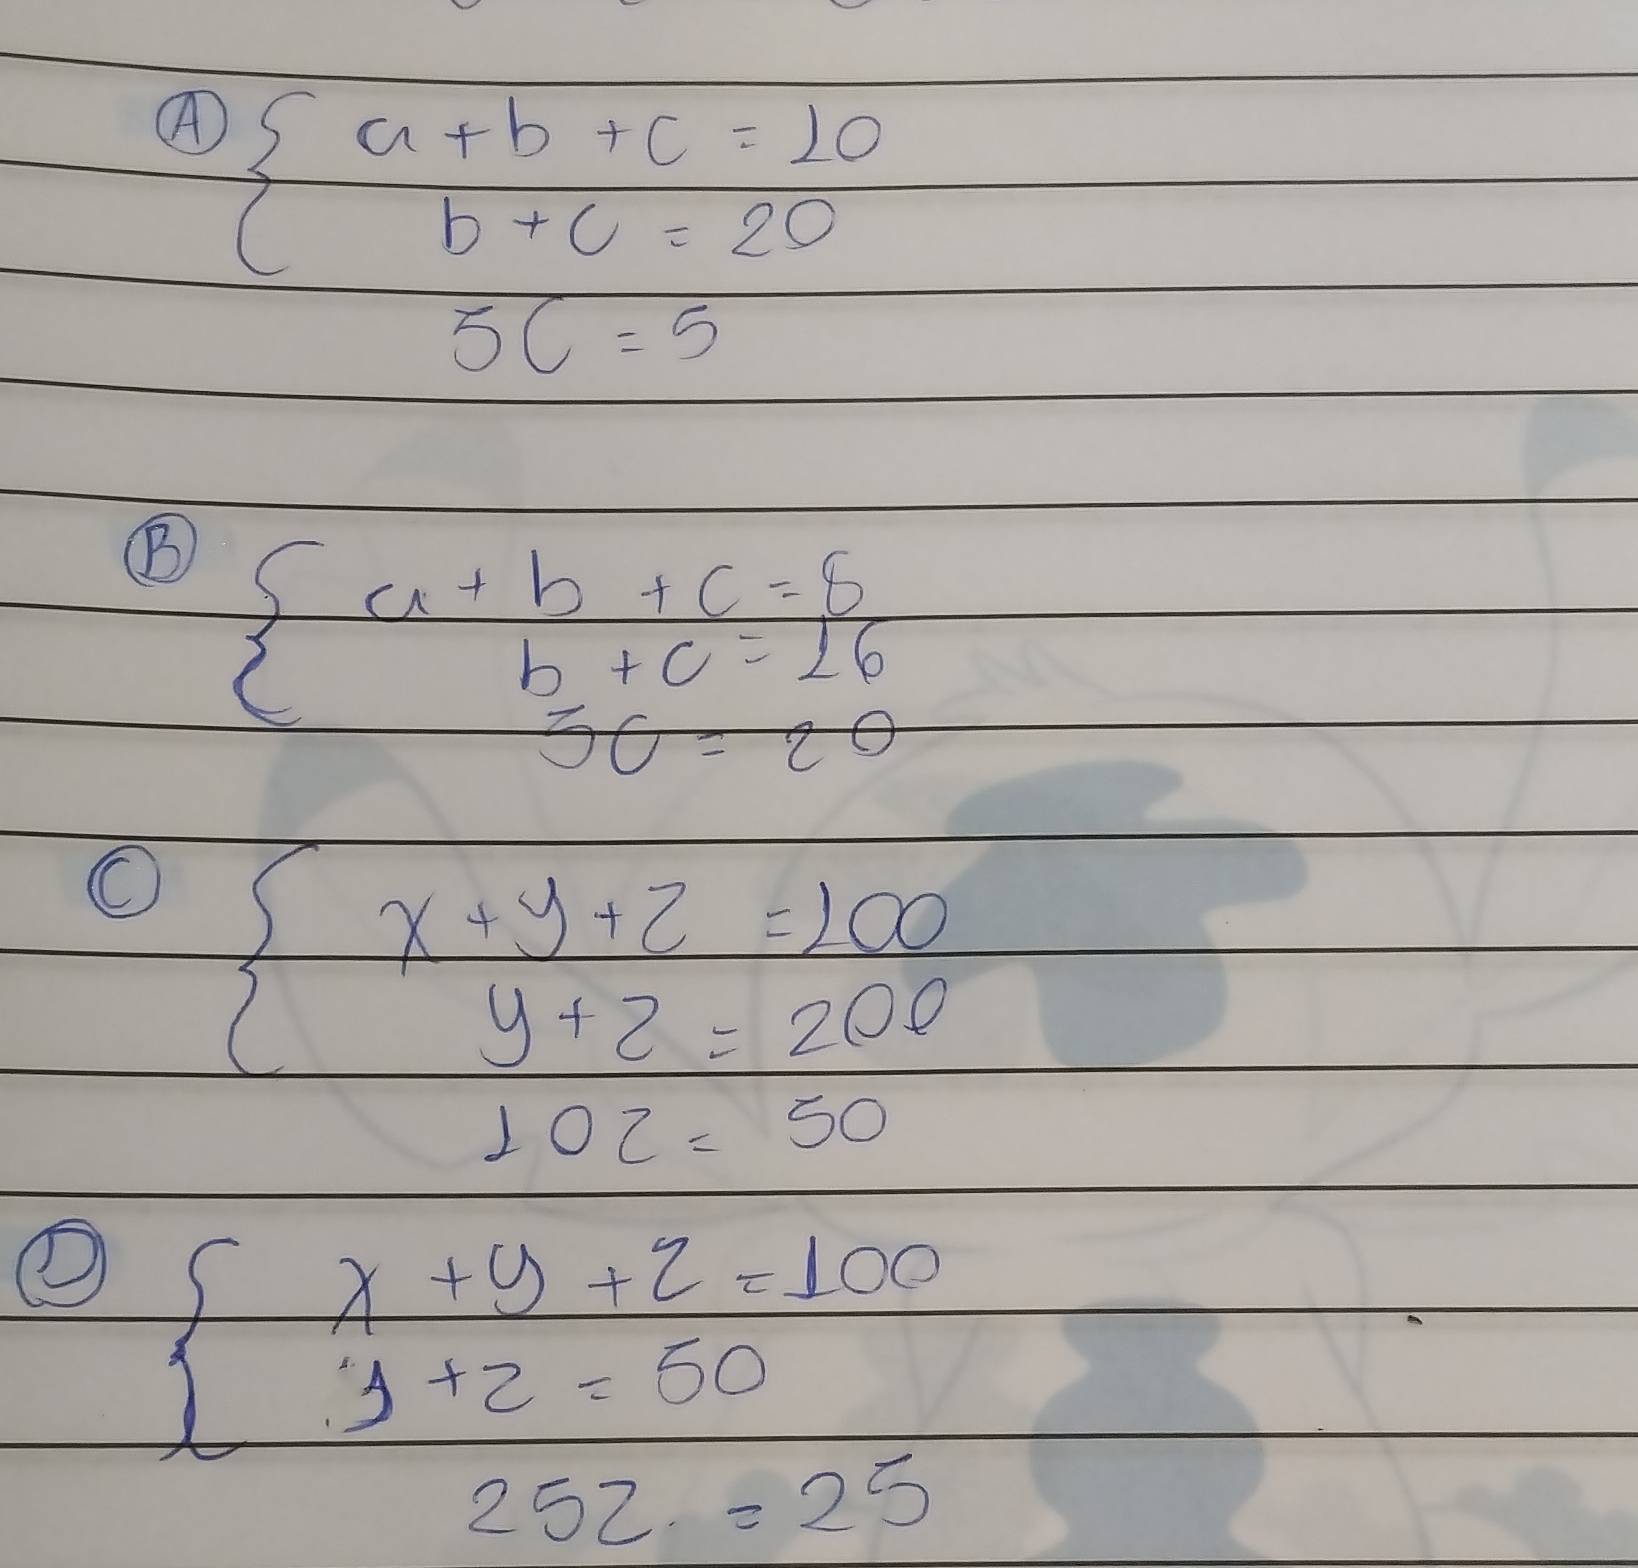 Ⓐ { a + b + c = 10
b + c = 20
5C = 5
Ⓑ { a + b + c = 8
b + c = 16
5C = 20
Ⓒ { x + y + z = 100
y + z = 200
10z = 50
Ⓓ { x + y + z = 100
y + z = 50
25z = 25